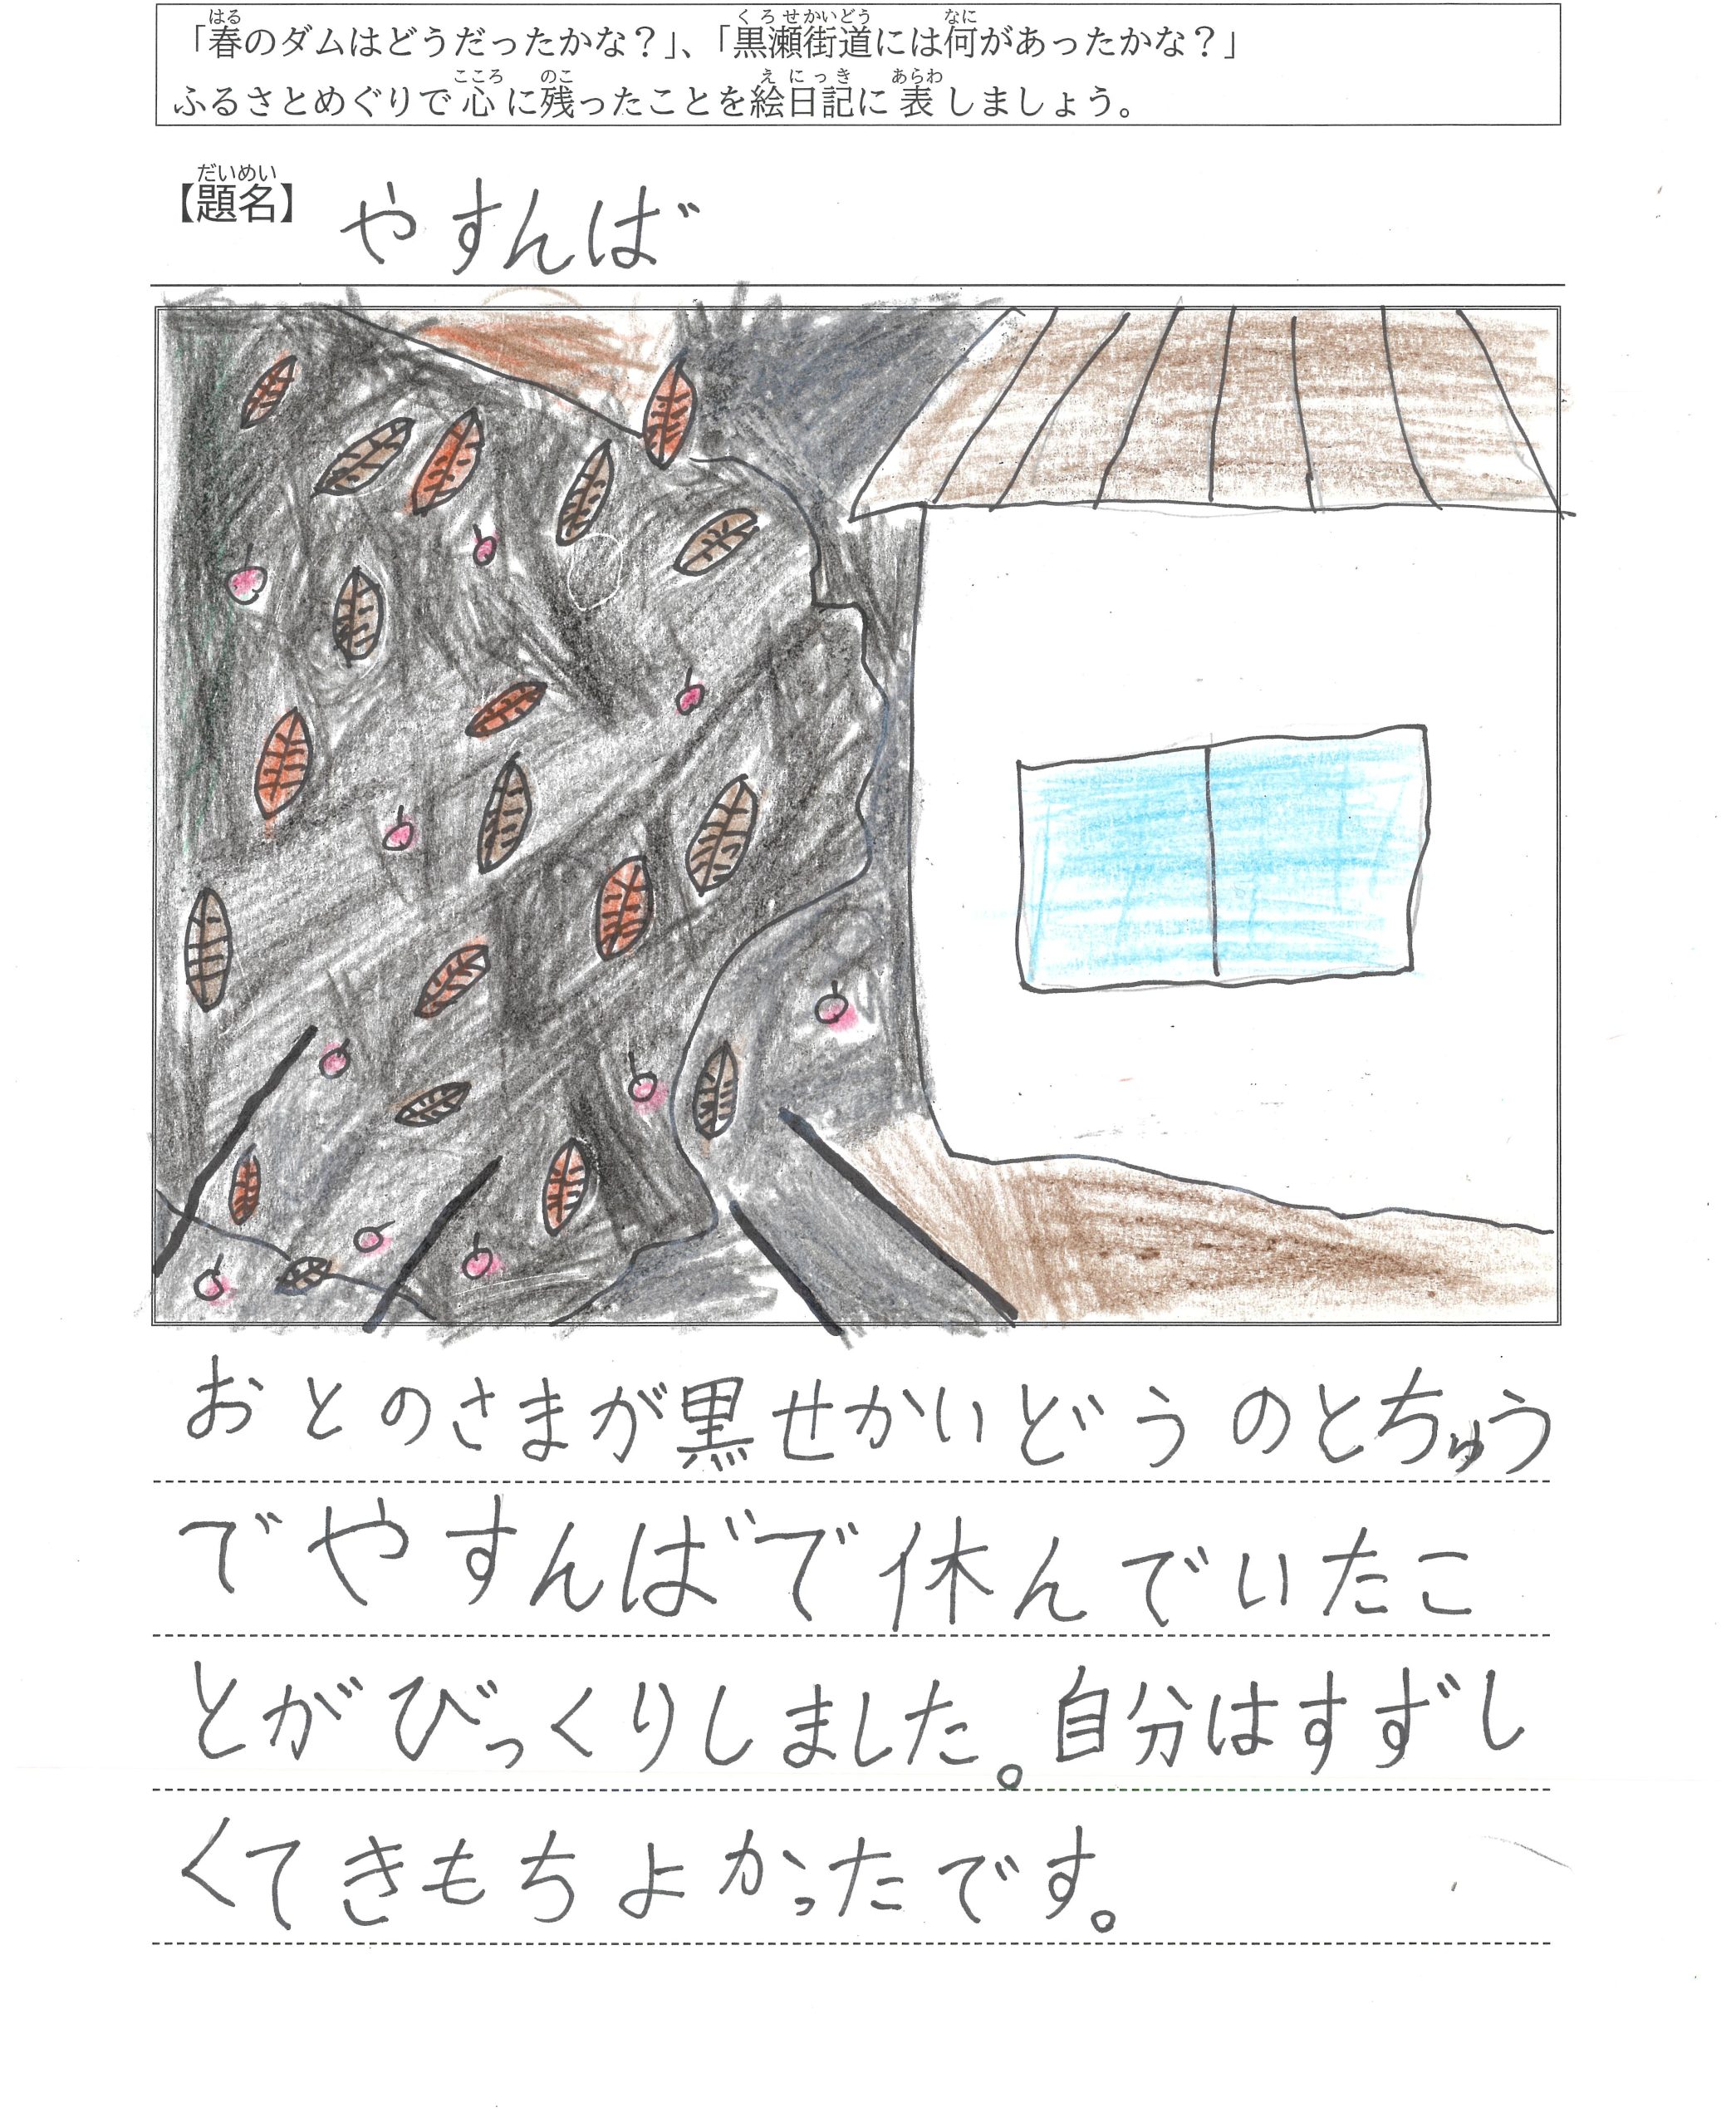 「春のダムはどうだったかな？」、「黒瀬街道には何があったかな？」
ふるさとめぐりで心に残ったことを絵日記に表しましょう。
【題名】 やすんば
おとのさまが黒せかいどうのとちゅう
でやすんばで休んでいたこ
とがびっくりしました。自分はすずし
くてきもちよかったです。